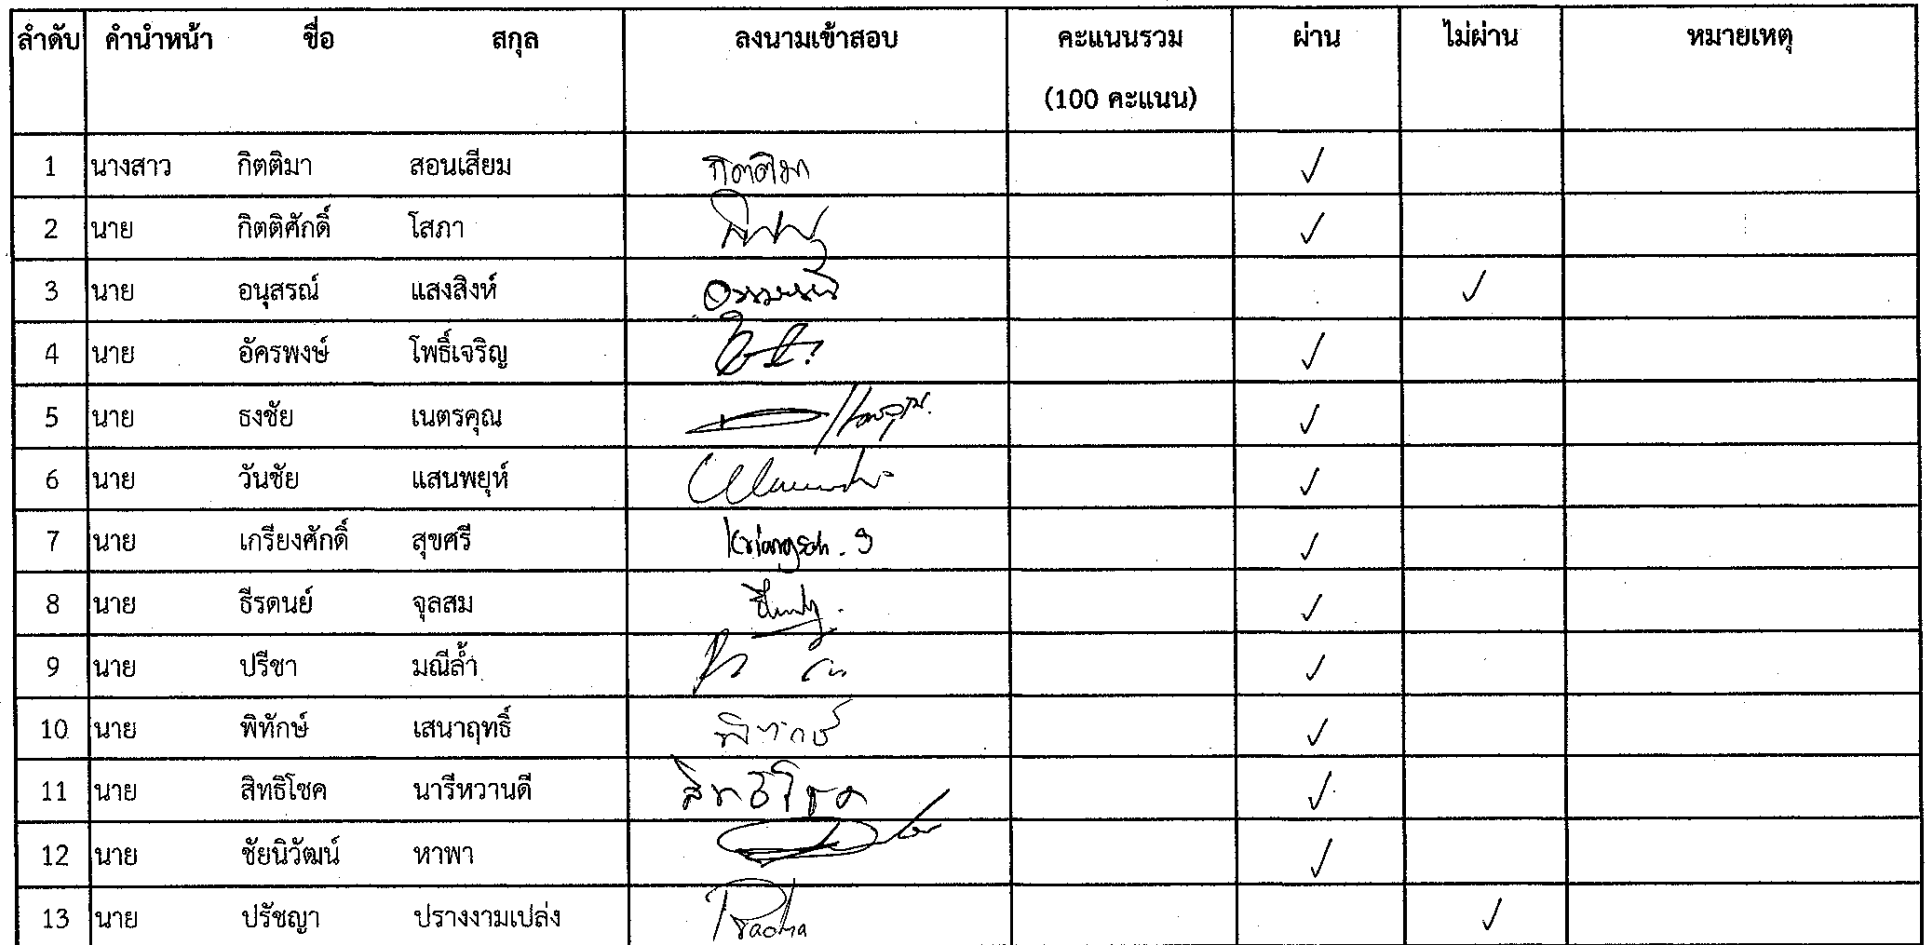 ลำดับ คำนำหน้า ชื่อ สกุล ลงนามเข้าสอบ คะแนนรวม ผ่าน ไม่ผ่าน หมายเหตุ
(100 คะแนน)
1 นางสาว กิตติมา สอนเสียม กิตติมา ✓
2 นาย กิตติศักดิ์ โสภา ✓
3 นาย อนุสรณ์ แสงสิงห์ ✓
4 นาย อัครพงษ์ โพธิ์เจริญ ✓
5 นาย ธงชัย เนตรคุณ ✓
6 นาย วันชัย แสนพยุห์ ✓
7 นาย เกรียงศักดิ์ สุขศรี ✓
8 นาย ธีรดนย์ จุลสม ✓
9 นาย ปรีชา มณีล้ำ ✓
10 นาย พิทักษ์ เสนาฤทธิ์ พิทักษ์ ✓
11 นาย สิทธิโชค นารีหวานดี สิทธิโชค ✓
12 นาย ชัยนิวัฒน์ หาพา ✓
13 นาย ปรัชญา ปรางงามเปล่ง ✓